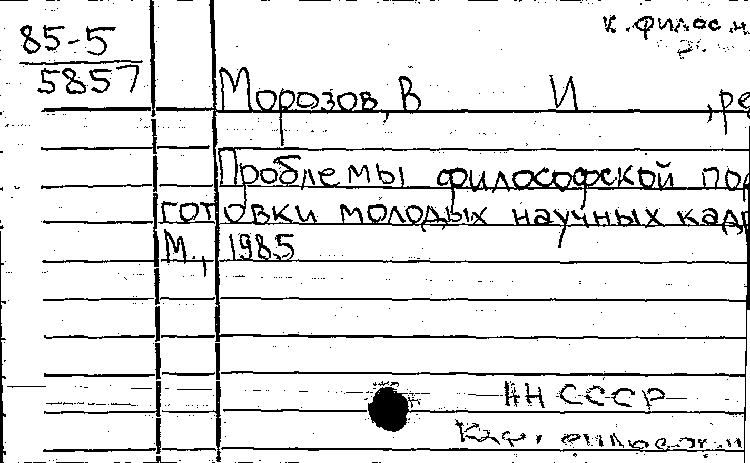 к. филос. н.
85-5
5857
Морозов, В И , ре
Проблемы философской под
готовки молодых научных кадр
М., 1985
АН СССР
Каф. философии